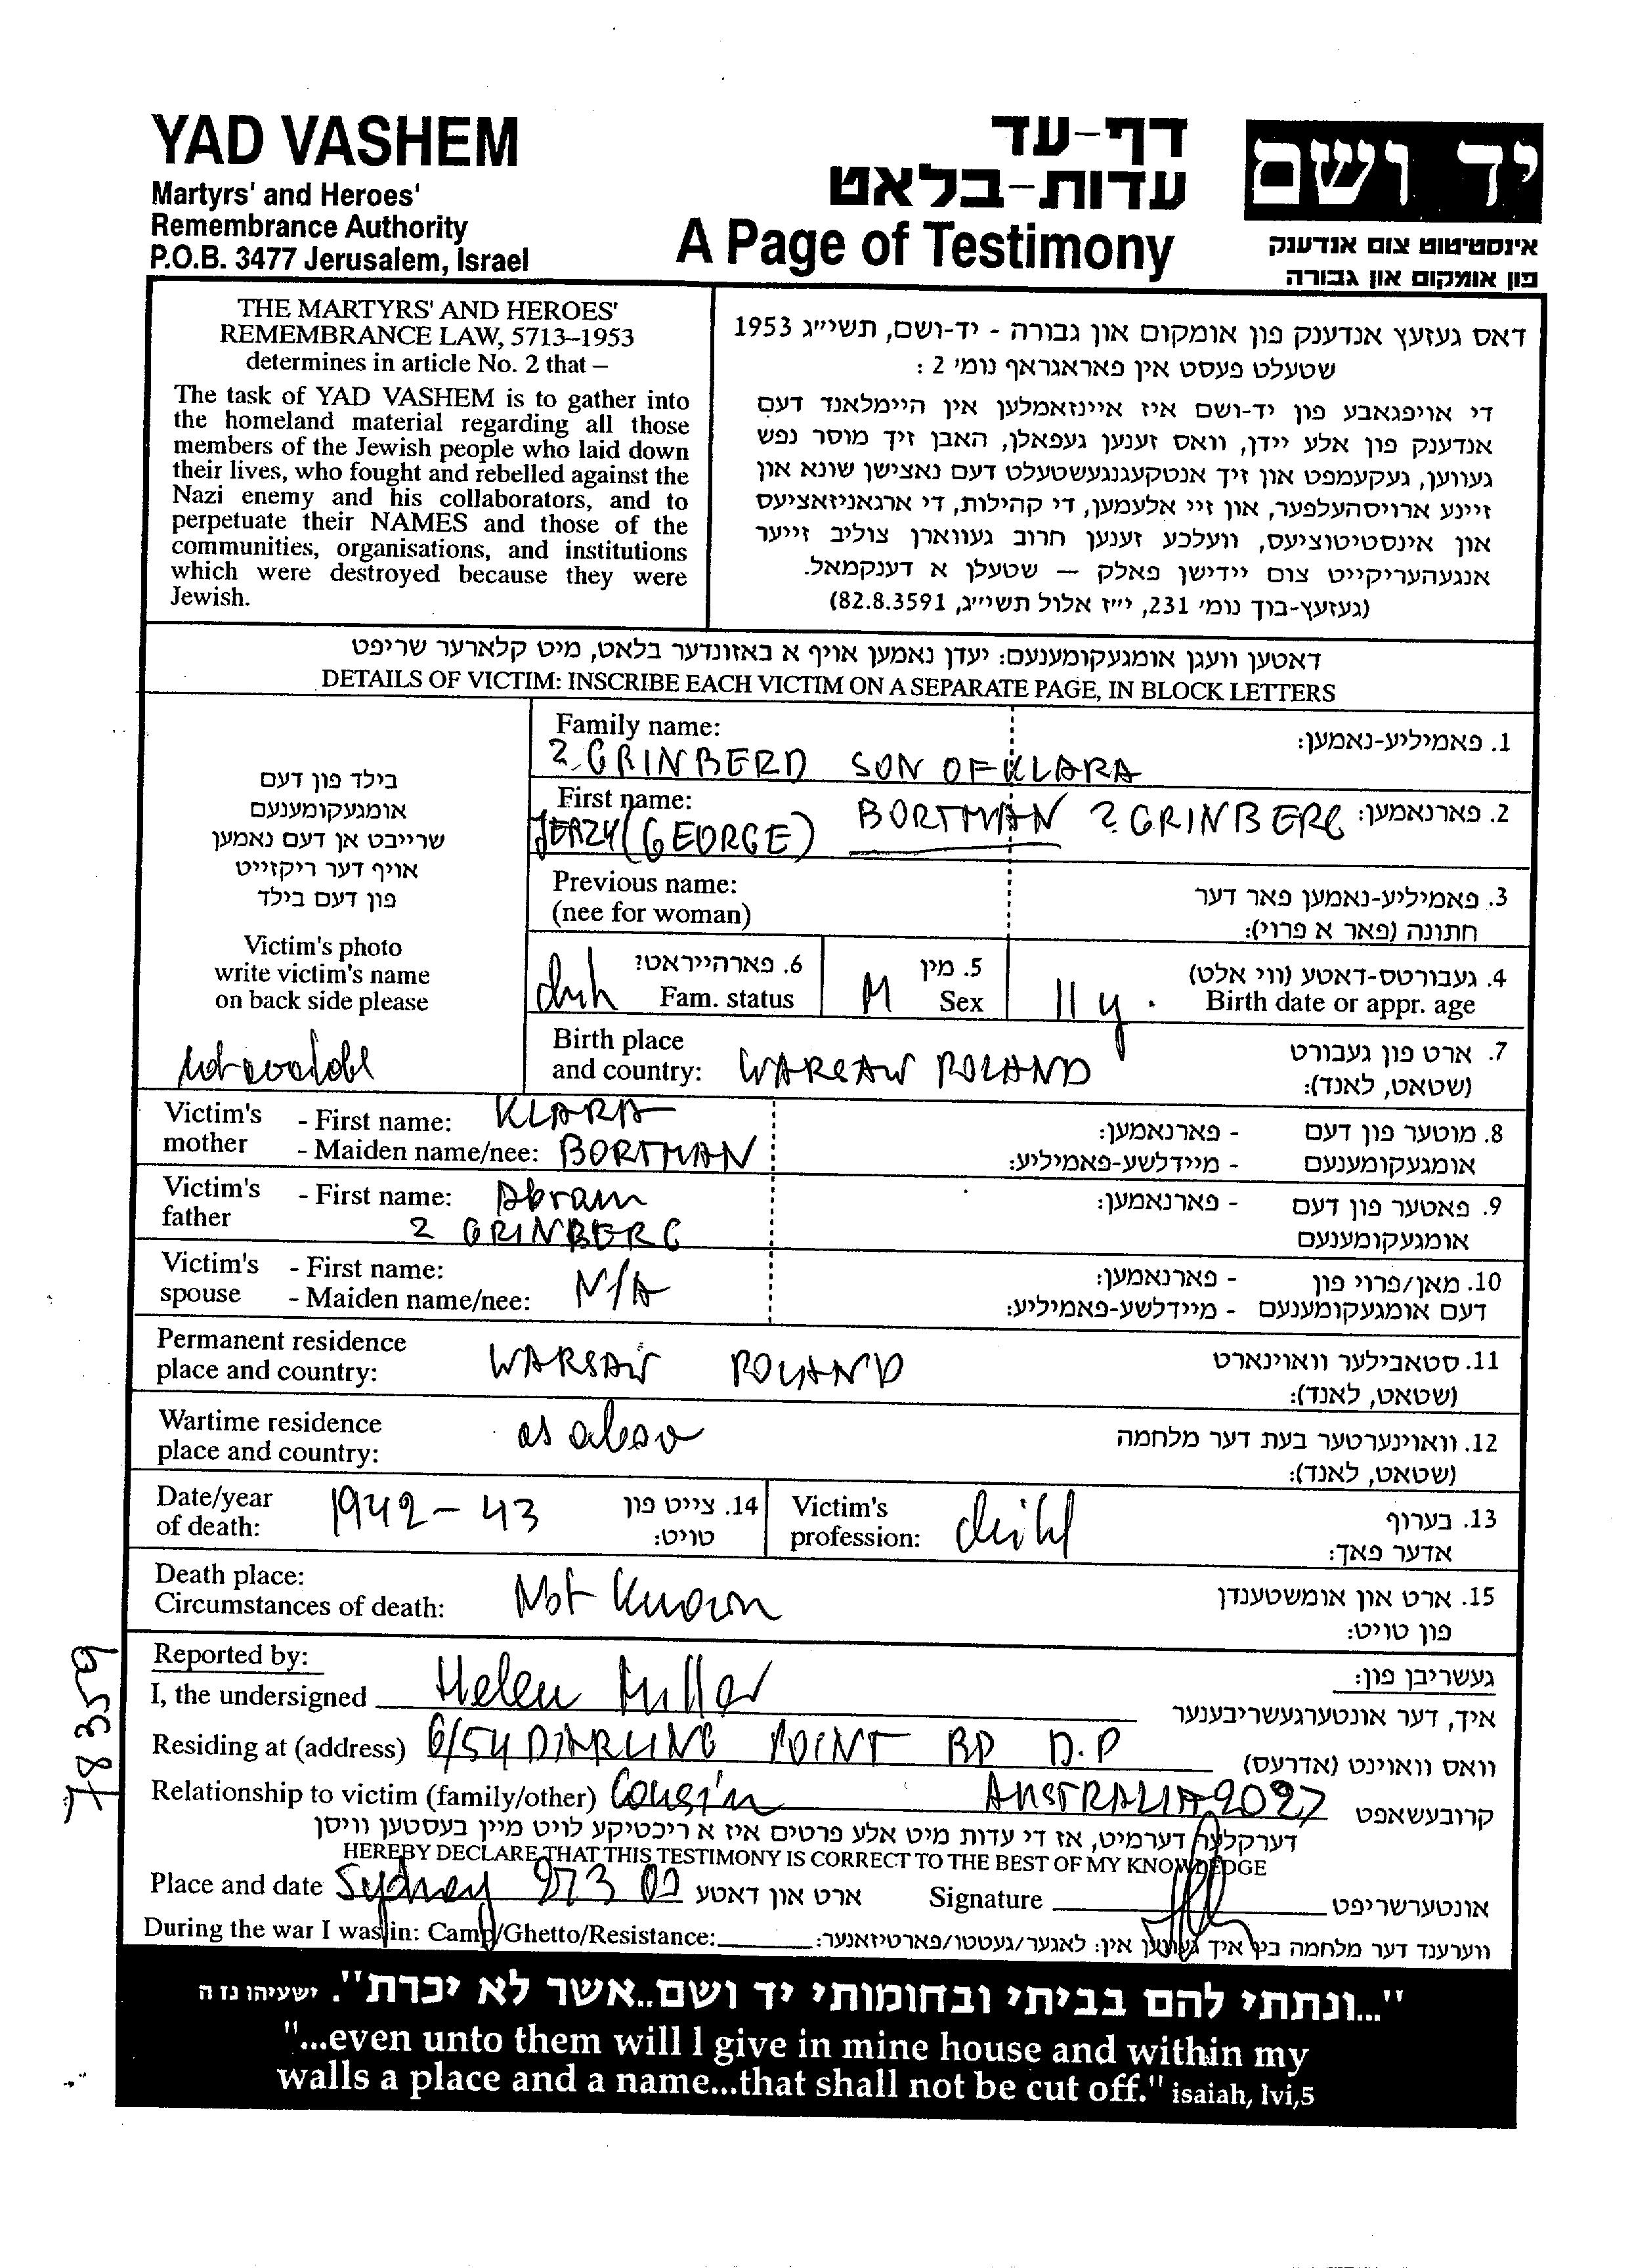 YAD VASHEM
Martyrs' and Heroes'
Remembrance Authority
P.O.B. 3477 Jerusalem, Israel
דף-עד
עדות-בלאט
A Page of Testimony
יד ושם
אינסטיטוט צום אנדענק
פון אומקום און גבורה
THE MARTYRS' AND HEROES'
REMEMBRANCE LAW, 5713–1953
determines in article No. 2 that –
The task of YAD VASHEM is to gather into
the homeland material regarding all those
members of the Jewish people who laid down
their lives, who fought and rebelled against the
Nazi enemy and his collaborators, and to
perpetuate their NAMES and those of the
communities, organisations, and institutions
which were destroyed because they were
Jewish.
דאס געזעץ אנדענק פון אומקום און גבורה - יד-ושם, תשי״ג 1953
שטעלט פעסט אין פאראגראף נומ׳ 2 :
די אויפגאבע פון יד-ושם איז איינזאמלען אין היימלאנד דעם
אנדענק פון אלע יידן, וואס זענען געפאלן, האבן זיך מוסר נפש
געווען, געקעמפט און זיך אנטקעגנגעשטעלט דעם נאצישן שונא און
זיינע ארויסהעלפער, און זיי אלעמען, די קהילות, די ארגאניזאציעס
און אינסטיטוציעס, וועלכע זענען חרוב געווארן צוליב זייער
אנגעהעריקייט צום יידישן פאלק — שטעלן א דענקמאל.
(געזעץ-בוך נומ׳ 231, י״ז אלול תשי״ג, 82.8.3591)
דאטען וועגן אומגעקומענעם: יעדן נאמען אויף א באזונדער בלאט, מיט קלארער שריפט
DETAILS OF VICTIM: INSCRIBE EACH VICTIM ON A SEPARATE PAGE, IN BLOCK LETTERS
בילד פון דעם
אומגעקומענעם
שרייבט אן דעם נאמען
אויף דער ריקזייט
פון דעם בילד
Victim's photo
write victim's name
on back side please
Family name:
1. פאמיליע-נאמען:
? GRINBERD SON OF KLARA
First name:
2. פארנאמען:
JERZY (GEORGE) BORTMAN ? GRINBERG
Previous name:
(nee for woman)
3. פאמיליע-נאמען פאר דער
חתונה (פאר א פרוי):
6. פארהייראט?
Fam. status
5. מין
Sex M
11 y.
4. געבורטס-דאטע (ווי אלט)
Birth date or appr. age
Birth place
and country: WARSAW POLAND
7. ארט פון געבורט
(שטאט, לאנד):
Victim's - First name: KLARA
mother - Maiden name/nee: BORTMAN
8. מוטער פון דעם - פארנאמען:
אומגעקומענעם - מיידלשע-פאמיליע:
Victim's - First name: Abram
father ? GRINBERG
9. פאטער פון דעם - פארנאמען:
אומגעקומענעם
Victim's - First name:
spouse - Maiden name/nee: N/A
10. מאן/פרוי פון - פארנאמען:
דעם אומגעקומענעם - מיידלשע-פאמיליע:
Permanent residence
place and country: WARSAW POLAND
11. סטאבילער וואוינארט
(שטאט, לאנד):
Wartime residence
place and country: as above
12. וואוינערטער בעת דער מלחמה
(שטאט, לאנד):
Date/year
of death: 1942 - 43
14. צייט פון
טויט:
Victim's
profession: child
13. בערוף
אדער פאך:
Death place:
Circumstances of death: Not known
15. ארט און אומשטענדן
פון טויט:
78359
Reported by:
געשריבן פון:
I, the undersigned Helen Miller איך, דער אונטערגעשריבענער
Residing at (address) 6/54 DARLING POINT RD D.P וואס וואוינט (אדרעס)
Relationship to victim (family/other) Cousin AUSTRALIA 2027 קרובעשאפט
דערקלער דערמיט, אז די עדות מיט אלע פרטים איז א ריכטיקע לויט מיין בעסטען וויסן
HEREBY DECLARE THAT THIS TESTIMONY IS CORRECT TO THE BEST OF MY KNOWLEDGE
Place and date Sydney ארט און דאטע Signature אונטערשריפט
During the war I was in: Camp/Ghetto/Resistance: ווערענד דער מלחמה בין איך געווען אין: לאגער/געטטו/פארטיזאנער:
"...ונתתי להם בביתי ובחומותי יד ושם..אשר לא יכרת". ישעיהו נז ה
"...even unto them will I give in mine house and within my
walls a place and a name...that shall not be cut off." isaiah, lvi,5